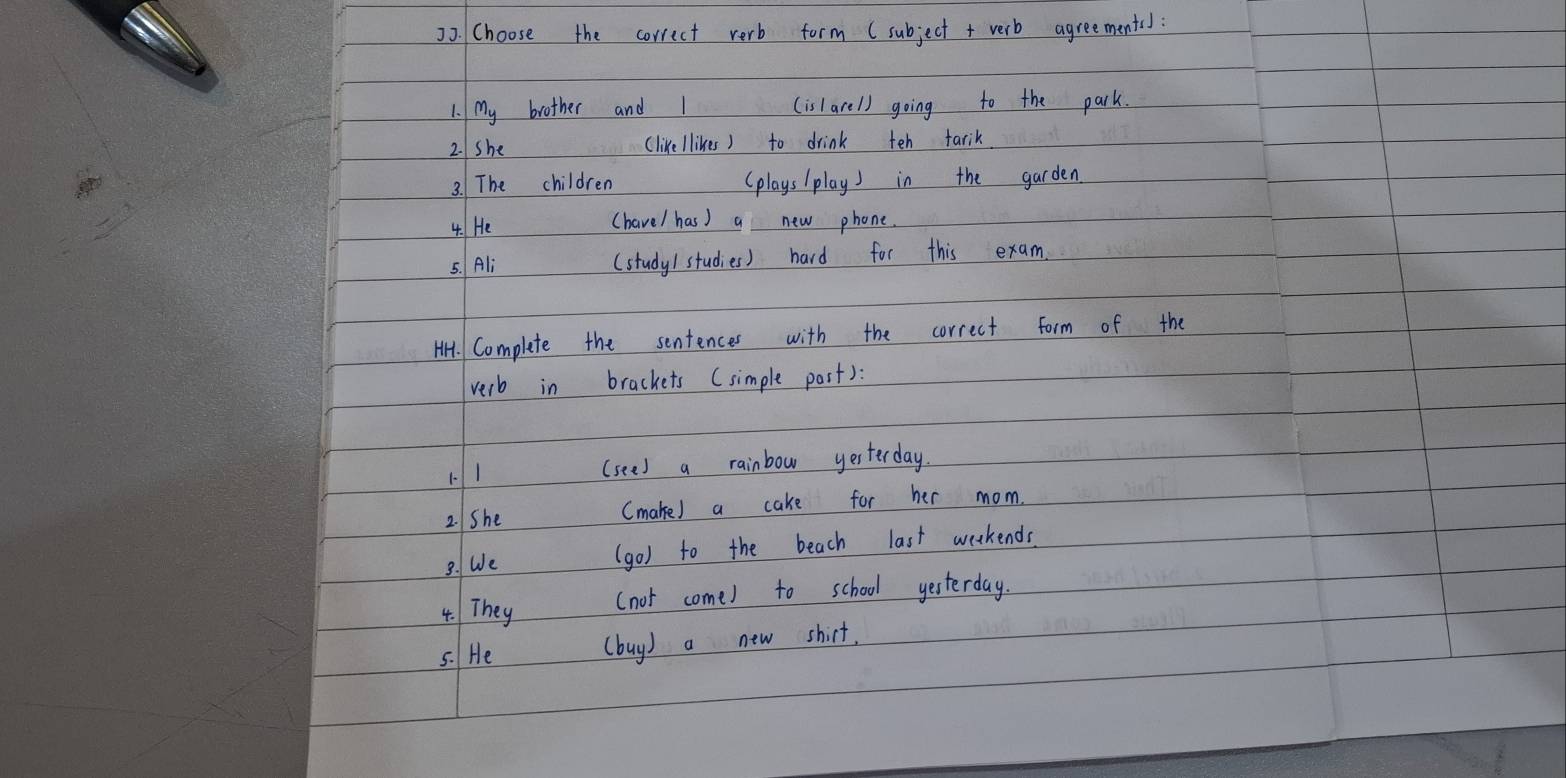 JJ. Choose the correct verb form (subject + verb agreements):
1. My brother and I (is/are/) going to the park.
2. She (like/likes) to drink teh tarik.
3. The children (plays/play) in the garden.
4. He (have/has) a new phone.
5. Ali (study/studies) hard for this exam.
HH. Complete the sentences with the correct form of the
verb in brackets (simple past):
1. I (see) a rainbow yesterday.
2. She (make) a cake for her mom.
3. We (go) to the beach last weekends.
4. They (not come) to school yesterday.
5. He (buy) a new shirt.